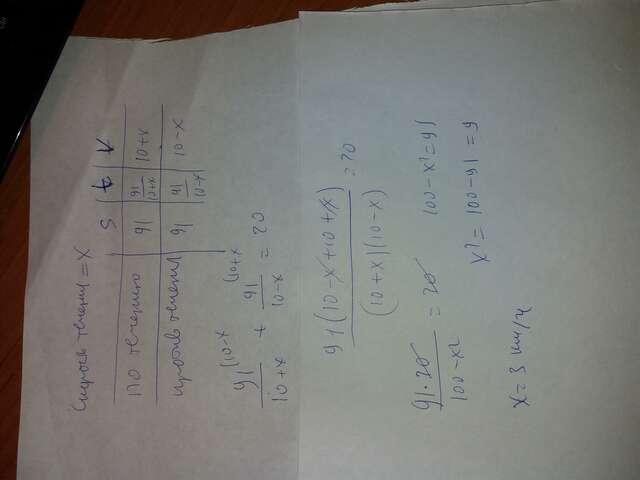 Скорость течения = x
S t V
по течению 91 91/10+x 10+x
против течения 91 91/10-x 10-x
91^(10-x / 10+x + 91^(10+x / 10-x = 20
91(10-x+10+x) / (10+x)(10-x) = 20
91·20 / 100-x² = 20 100-x²=91
x² = 100-91 = 9
x=3 км/ч